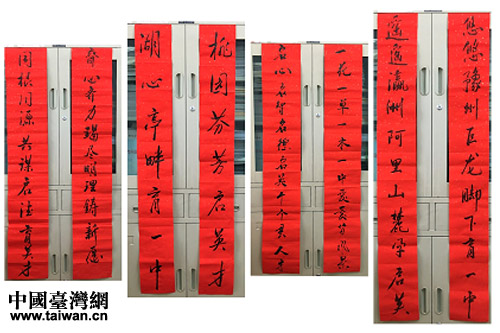 齐心齐力竭尽明理铸新德
同根同源共谋启德育英才
桃园芬芳启英才
湖心亭畔育一中
一花一草一木一中
启心启智启德启英
悠悠豫州巨龙脚下育一中
遥遥瀛洲阿里山麓孕启英
中國臺灣網
www.taiwan.cn